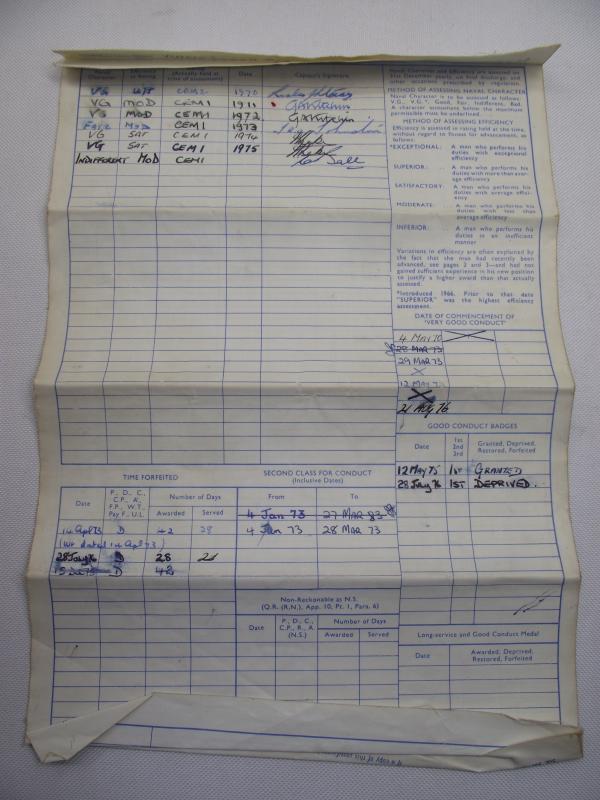 Naval Character
Efficiency in Rating
(Actually held at time of assessment)
Date
Captain's Signature
VG CEM2 1970
VG MOD CEM1 1971
VG MOD CEM1 1972
FAIR MOD CEM1 1973
VG SAT CEM1 1974
VG SAT CEM1 1975
INDIFFERENT MOD CEM1
Naval Character and Efficiency are assessed on
31st December yearly, on final discharge, and
other occasions prescribed by regulation.
METHOD OF ASSESSING NAVAL CHARACTER
Naval Character is to be assessed as follows:
V.G., V.G.*, Good, Fair, Indifferent, Bad.
A character assessment below the maximum
permissible must be underlined.
METHOD OF ASSESSING EFFICIENCY
Efficiency is assessed in rating held at the time,
without regard to fitness for advancement, as
follows:
*EXCEPTIONAL: A man who performs his
duties with exceptional
efficiency
SUPERIOR: A man who performs his
duties with more than aver-
age efficiency
SATISFACTORY: A man who performs his
duties with average effici-
ency
MODERATE: A man who performs his
duties with less than
average efficiency
INFERIOR: A man who performs his
duties in an inefficient
manner
Variations in efficiency are often explained by
the fact that the man had recently been
advanced, see pages 2 and 3—and had not
gained sufficient experience in his new position
to justify a higher award than that actually
assessed.
*Introduced 1966. Prior to that date
"SUPERIOR" was the highest efficiency
assessment.
DATE OF COMMENCEMENT OF
'VERY GOOD CONDUCT'
4 MAY 70
28 MAR 73
29 MAR 73
12 MAY
21 AUG 76
GOOD CONDUCT BADGES
Date
1st
2nd
3rd
Granted, Deprived,
Restored, Forfeited
12 MAY 75 1ST GRANTED
28 July 76 1ST DEPRIVED.
TIME FORFEITED
Date
P., D., C.,
C.P., A.,
F.P., W.T.,
Pay F., U.L.
Number of Days
Awarded
Served
14 Apl 73 D 42 28
(Wt dated 14 Apl 73)
28 July 76 D 28 21
D 42
SECOND CLASS FOR CONDUCT
(Inclusive Dates)
From
To
4 Jan 73 27 MAR 83
4 Jan 73 28 MAR 73
Non-Reckonable as N.S.
(Q.R. (R.N.), App. 10, Pt. 1, Para. 6)
Date
P., D., C.,
C.P., R., A
(N.S.)
Number of Days
Awarded
Served
Long-service and Good Conduct Medal
Date
Awarded, Deprived,
Restored, Forfeited